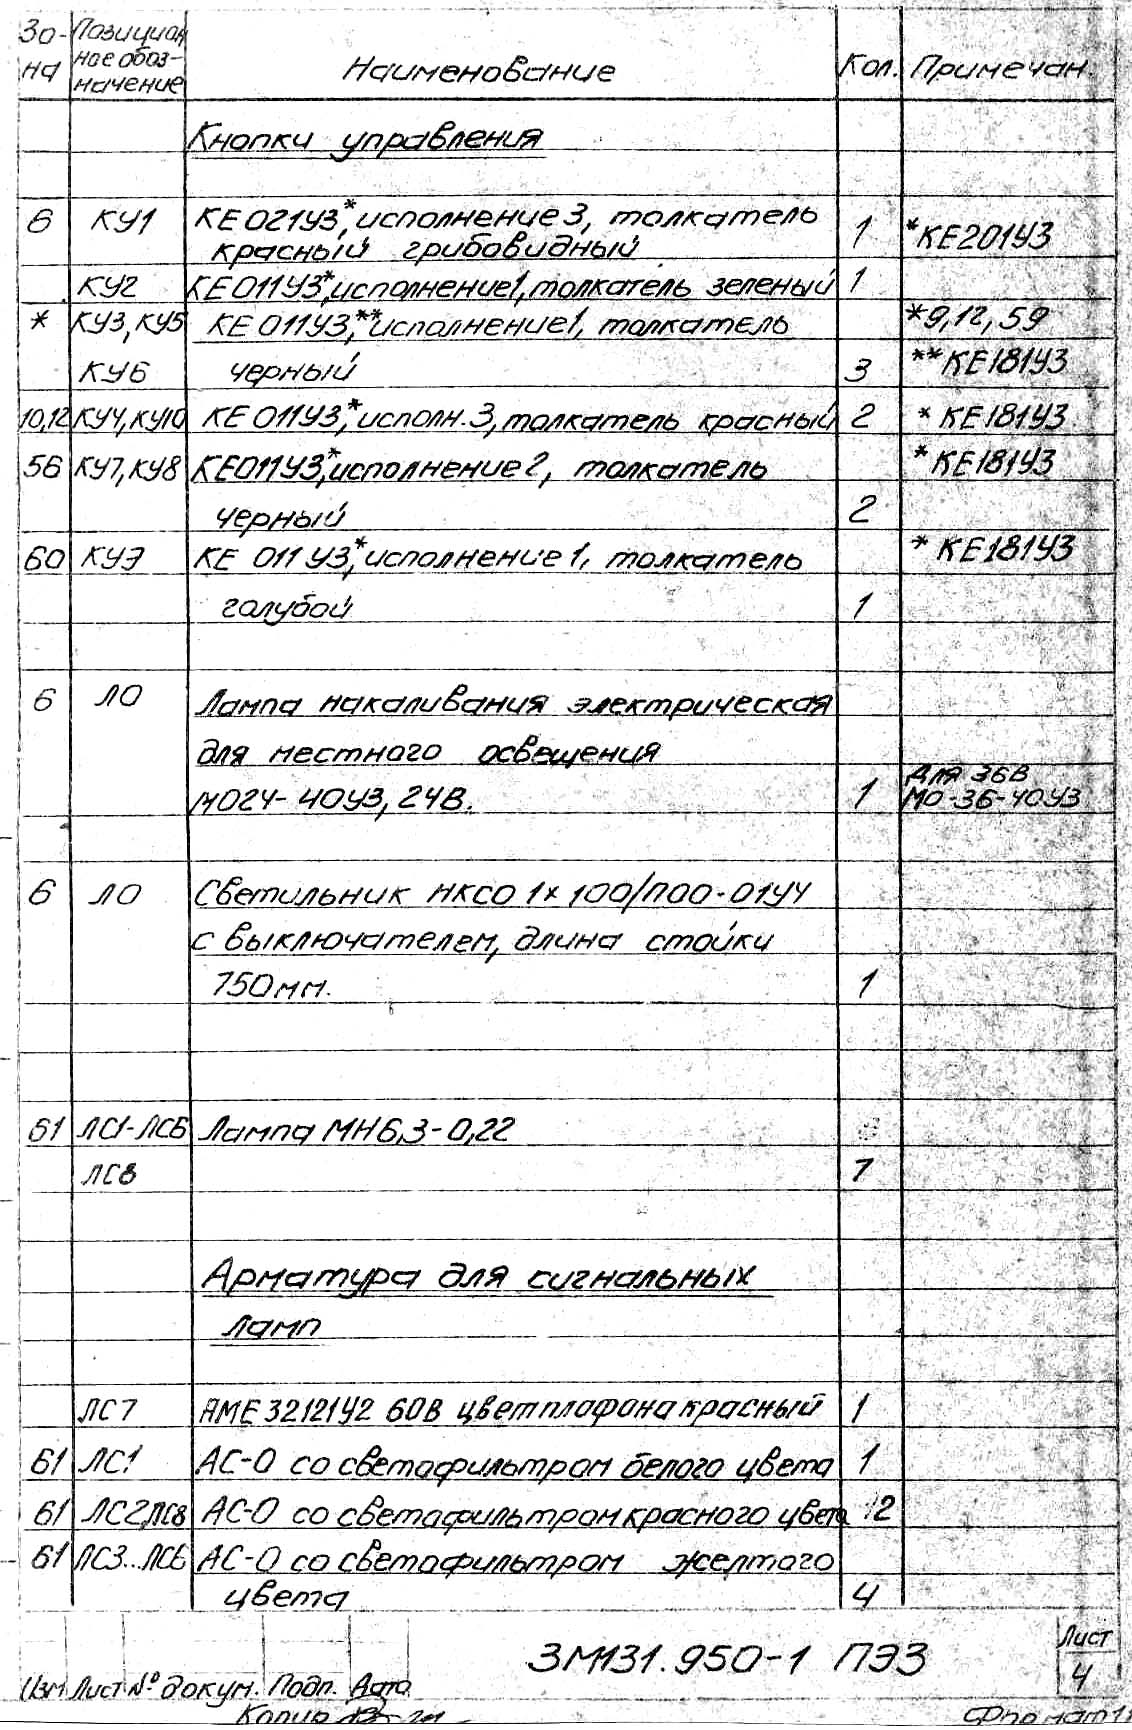 Зо- Позицион
на ное обоз- Наименование Кол. Примечан.
начение
Кнопки управления
6 КУ1 КЕ021У3,* исполнение 3, толкатель 1 *КЕ201У3
красный грибовидный
КУ2 КЕ011У3*, исполнение 1, толкатель зеленый 1
* КУ3, КУ5 КЕ 011У3,** исполнение 1, толкатель *9,12,59
КУ6 черный 3 **КЕ181У3
10,12 КУ4, КУ10 КЕ 011У3,* исполн. 3, толкатель красный 2 *КЕ181У3
56 КУ7, КУ8 КЕ011У3,* исполнение 2, толкатель *КЕ181У3
черный 2
60 КУ9 КЕ 011У3,* исполнение 1, толкатель *КЕ181У3
голубой 1
6 ЛО Лампа накаливания электрическая
для местного освещения
МО24-40У3, 24В. 1 Для 36В
МО-36-40У3
6 ЛО Светильник НКСО 1х100/П00-01У4
с выключателем, длина стойки
750мм. 1
61 ЛС1-ЛС6 Лампа МН6,3-0,22
ЛС8 7
Арматура для сигнальных
ламп
ЛС7 АМЕ32121У2 60В цвет плафона красный 1
61 ЛС1 АС-О со светофильтром белого цвета 1
61 ЛС2,ЛС8 АС-О со светофильтром красного цвета 2
61 ЛС3...ЛС6 АС-О со светофильтром желтого
цвета 4
3М131.950-1 ПЭ3 Лист
4
Изм Лист № докум. Подп. Дата
Копир